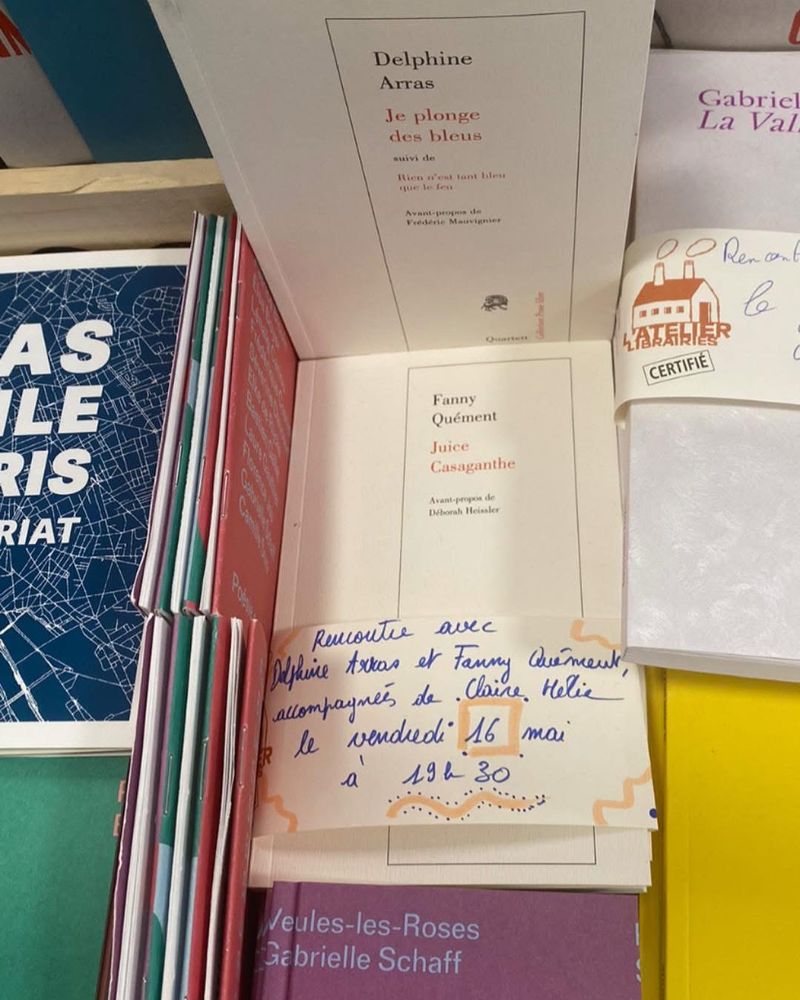 Delphine
Arras
Je plonge
des bleus
suivi de
Rien n'est tant bleu
que le feu
Avant-propos de
Frédéric Mauvignier
Quartett
Collection Prose libre
Gabriel
La Val
Rencont
le
L'ATELIER
LIBRAIRIES
CERTIFIÉ
AS
ILE
RIS
RIAT
Fanny
Quément
Juice
Casaganthe
Avant-propos de
Déborah Heissler
Rencontre avec
Delphine Arras et Fanny Quément,
accompagnées de Claire Hélie
le vendredi 16 mai
à 19h30
Veules-les-Roses
Gabrielle Schaff